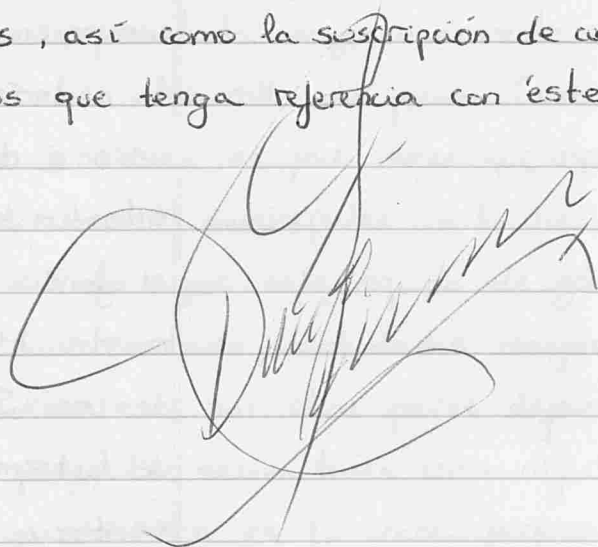 s, así como la suscripción de cu
os que tenga referencia con éste